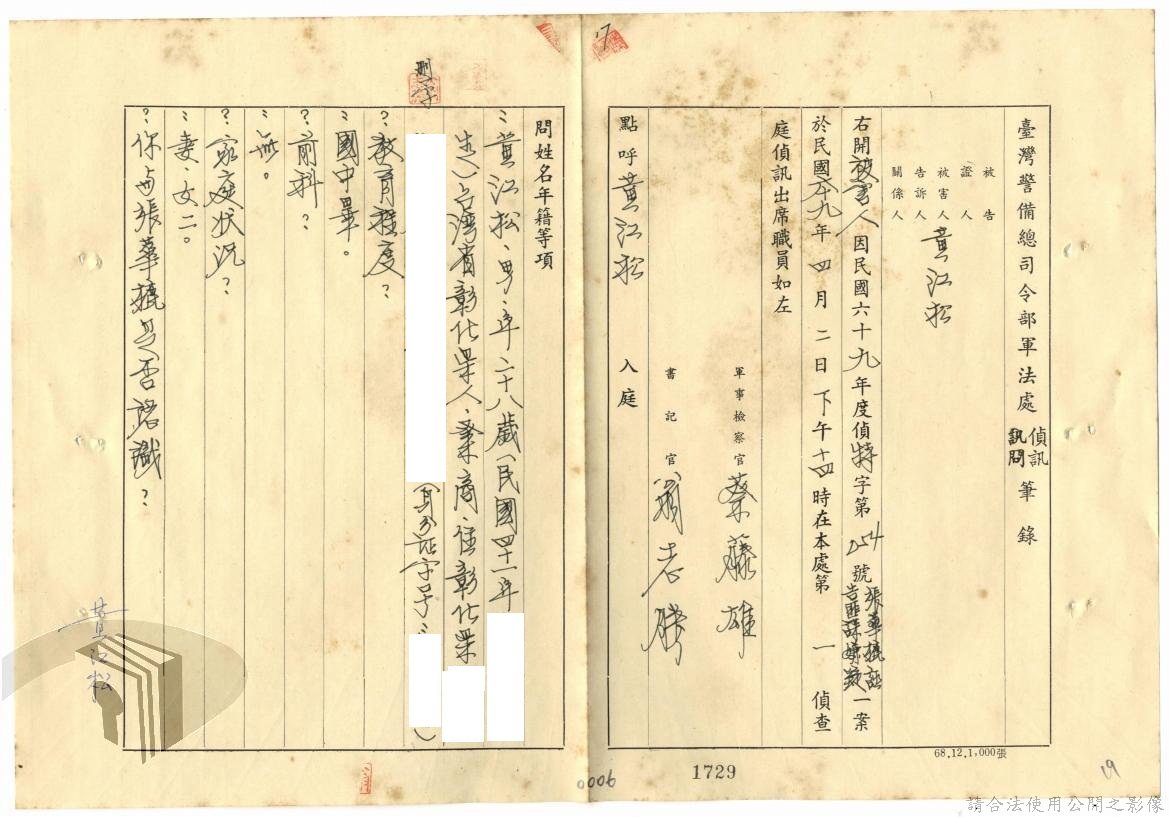 17
臺灣警備總司令部軍法處偵訊訊問筆錄
被告
證人
被害人 黃江松
告訴人
關係人
右開被害人因民國六十九年度偵特字第254號張華摭誣告匪諜嫌疑一案
於民國六九年四月二日下午十四時在本處第一偵查
庭偵訊出席職員如左
軍事檢察官 蔡藤雄
書記官
點呼黃江松 入庭
問姓名年籍等項
:黃江松、男、年二十八歲(民國四十一年
生)台灣省彰化県人、業商、住彰化県
身分証字号:)
刪 字
?教育程度?
:國中畢。
?前科?
:無。
?家庭狀況?
:妻、女二。
?你与張華摭是否認識?
黃江松
68.12.1,000張
0006
1729
19
請合法使用公開之影像